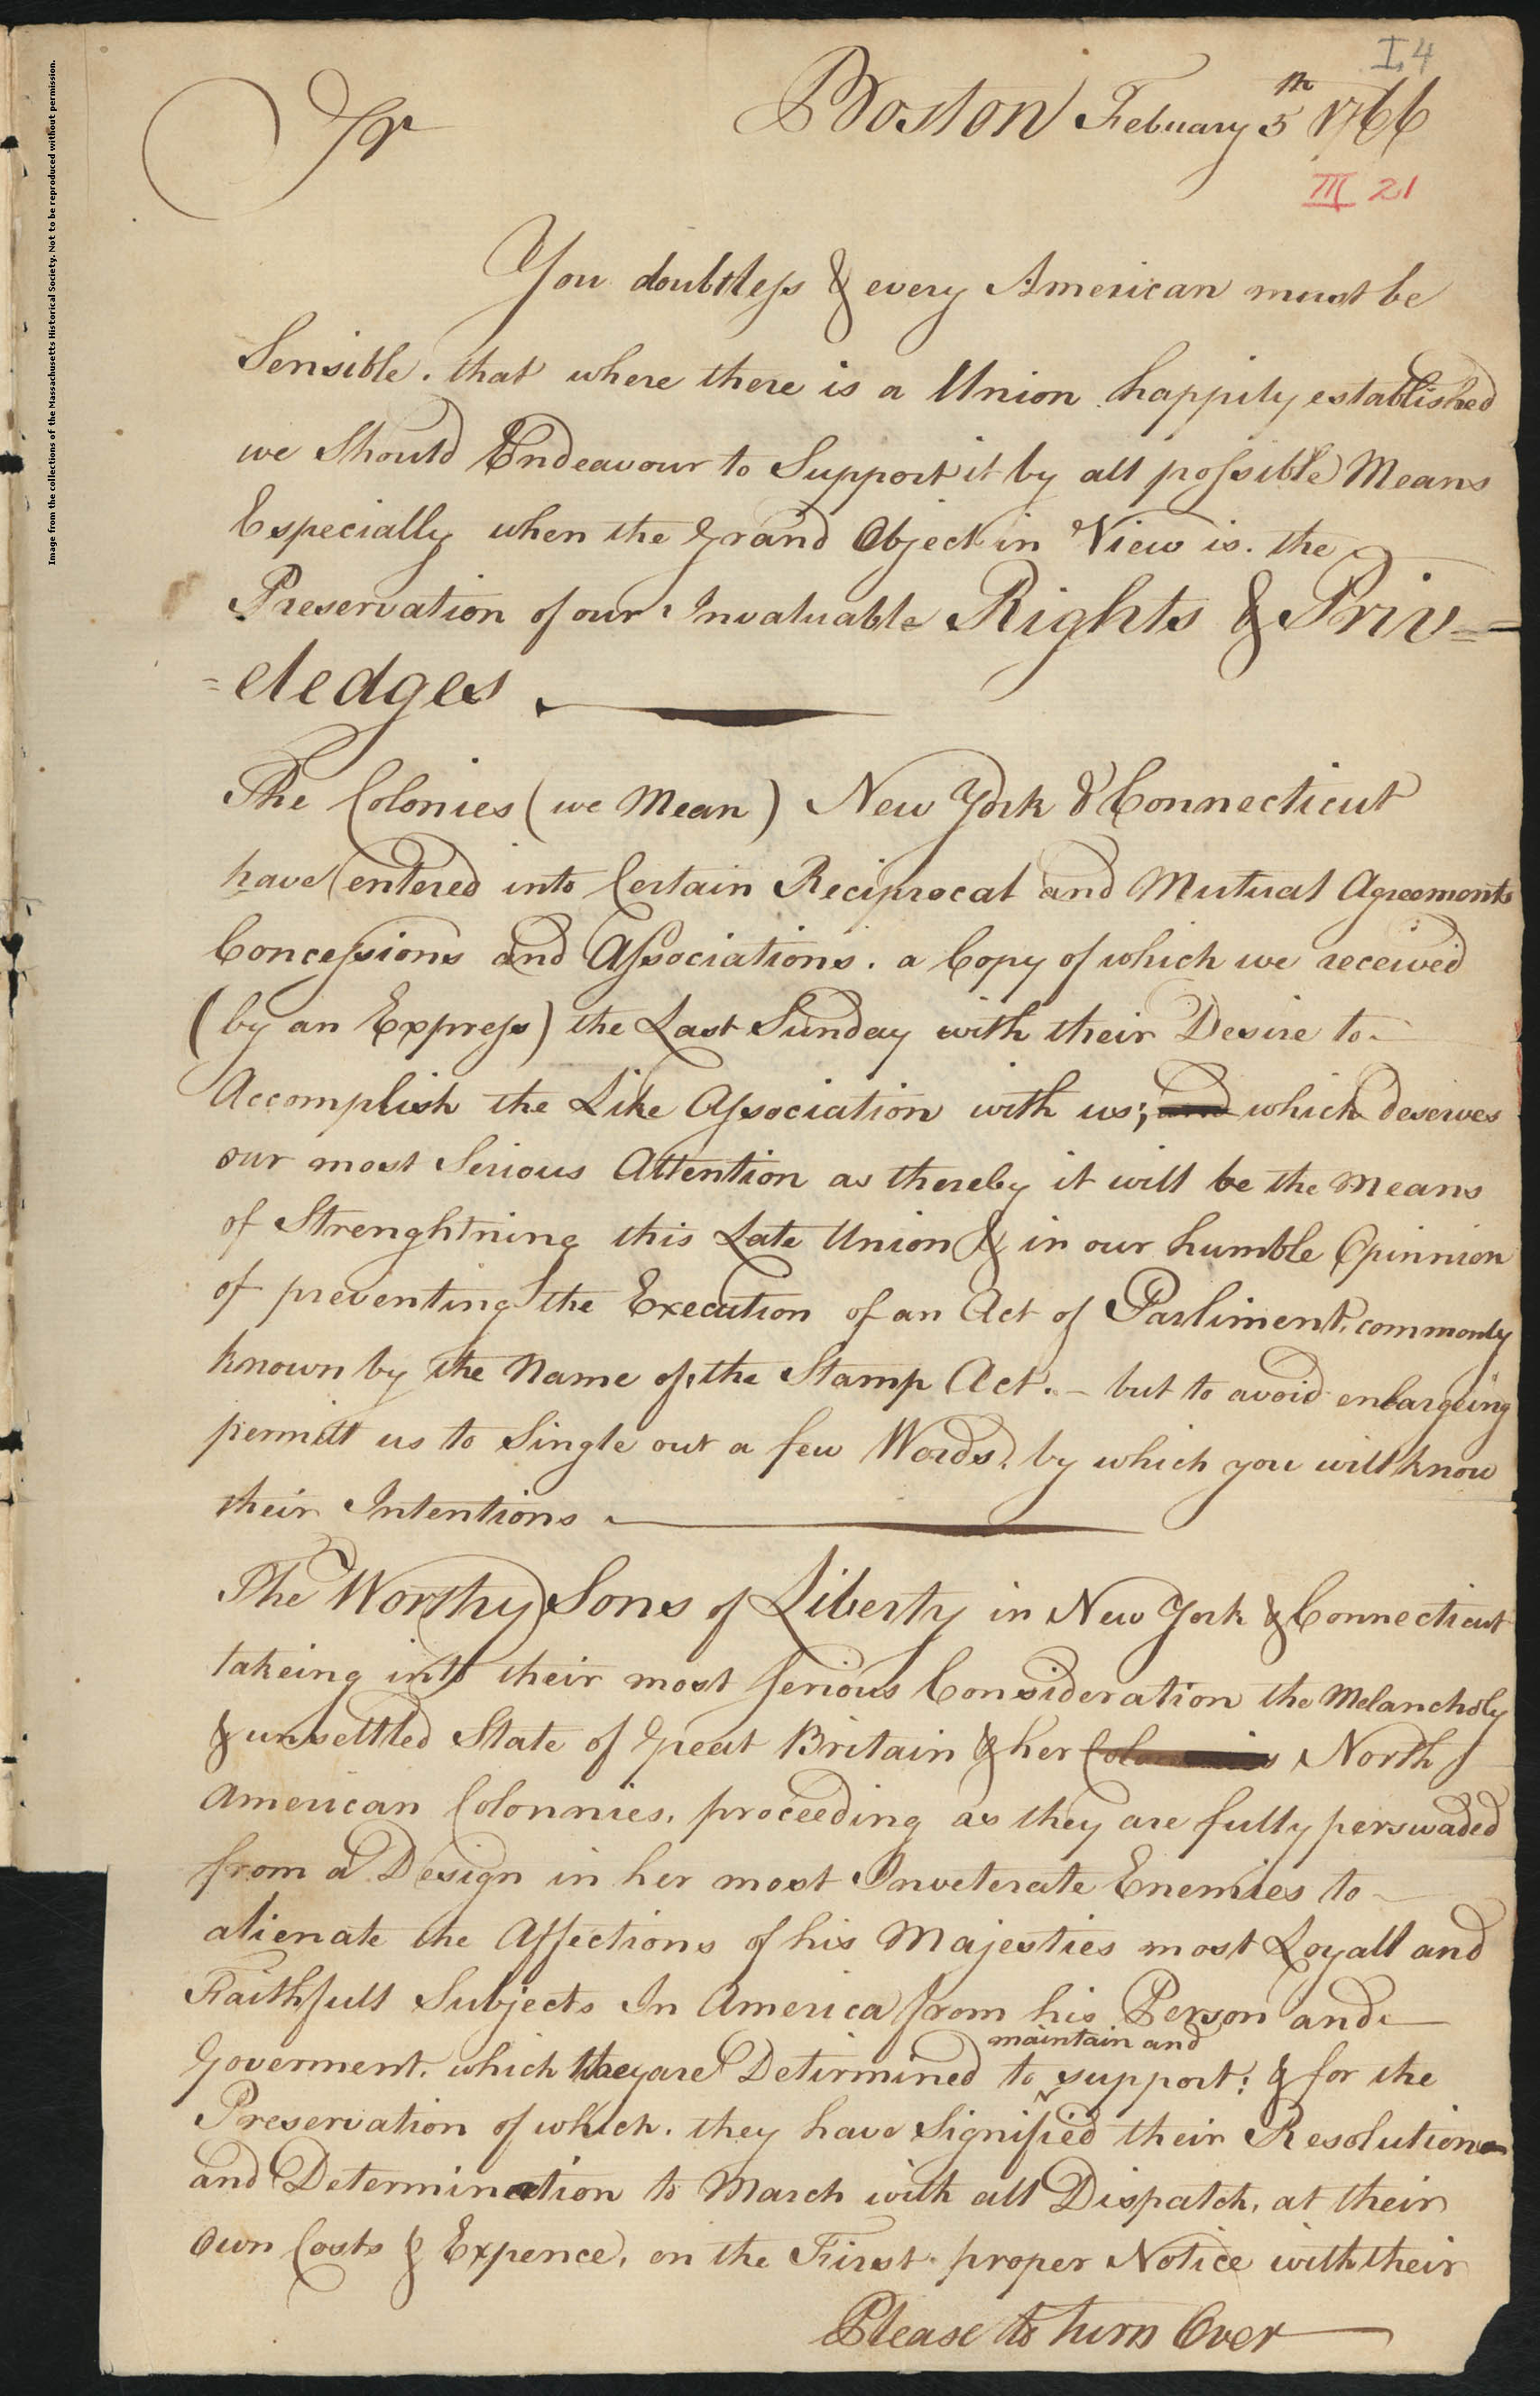 I, 4
Sr Boston Febuary 5th 1766
III 21
You doubtless & every American must be
Sensible. that where there is a Union happily established
we Should Endeavour to Support it by all possible Means
Especially when the Grand Object in View is. the
Preservation of our Invaluable Rights & Priv=
=eledges.
The Colonies (we Mean) New York & Connecticut
have entered into Certain Reciprocal and Mutual Agreements
Concessions and Associations. a Copy of which we received
(by an Express) the Last Sunday with their Desire to
Accomplish the Like Association with us; and which deserves
our most Serious Attention as thereby it will be the Means
of Strenghtning this Late Union & in our humble Opinnion
of preventing the Execution of an Act of Parliment, commonly
known by the Name of, the Stamp Act. - but to avoid enlargeing
permitt us to Single out a few Words, by which you will know
their Intentions.
The Worthy Sons of Liberty in New York & Connecticut
takeing into their most Serious Consideration the Melancholy
& unsettled State of Great Britain & her Colonnies North
American Colonnies, proceeding as they are fully perswaded
from a Design in her most Inveterate Enemies to
alienate the Affections of his Majesties most Loyall and
Faithfull Subjects In America from his Person and
maintain and
Goverment. which they are Determined to ^ support: & for the
Preservation of which. they have Signified their Resolution
and Determination to March with all Dispatch, at their
Own Costs & Expence, on the First proper Notice with their
Please to turn Over
Image from the collections of the Massachusetts Historical Society. Not to be reproduced without permission.